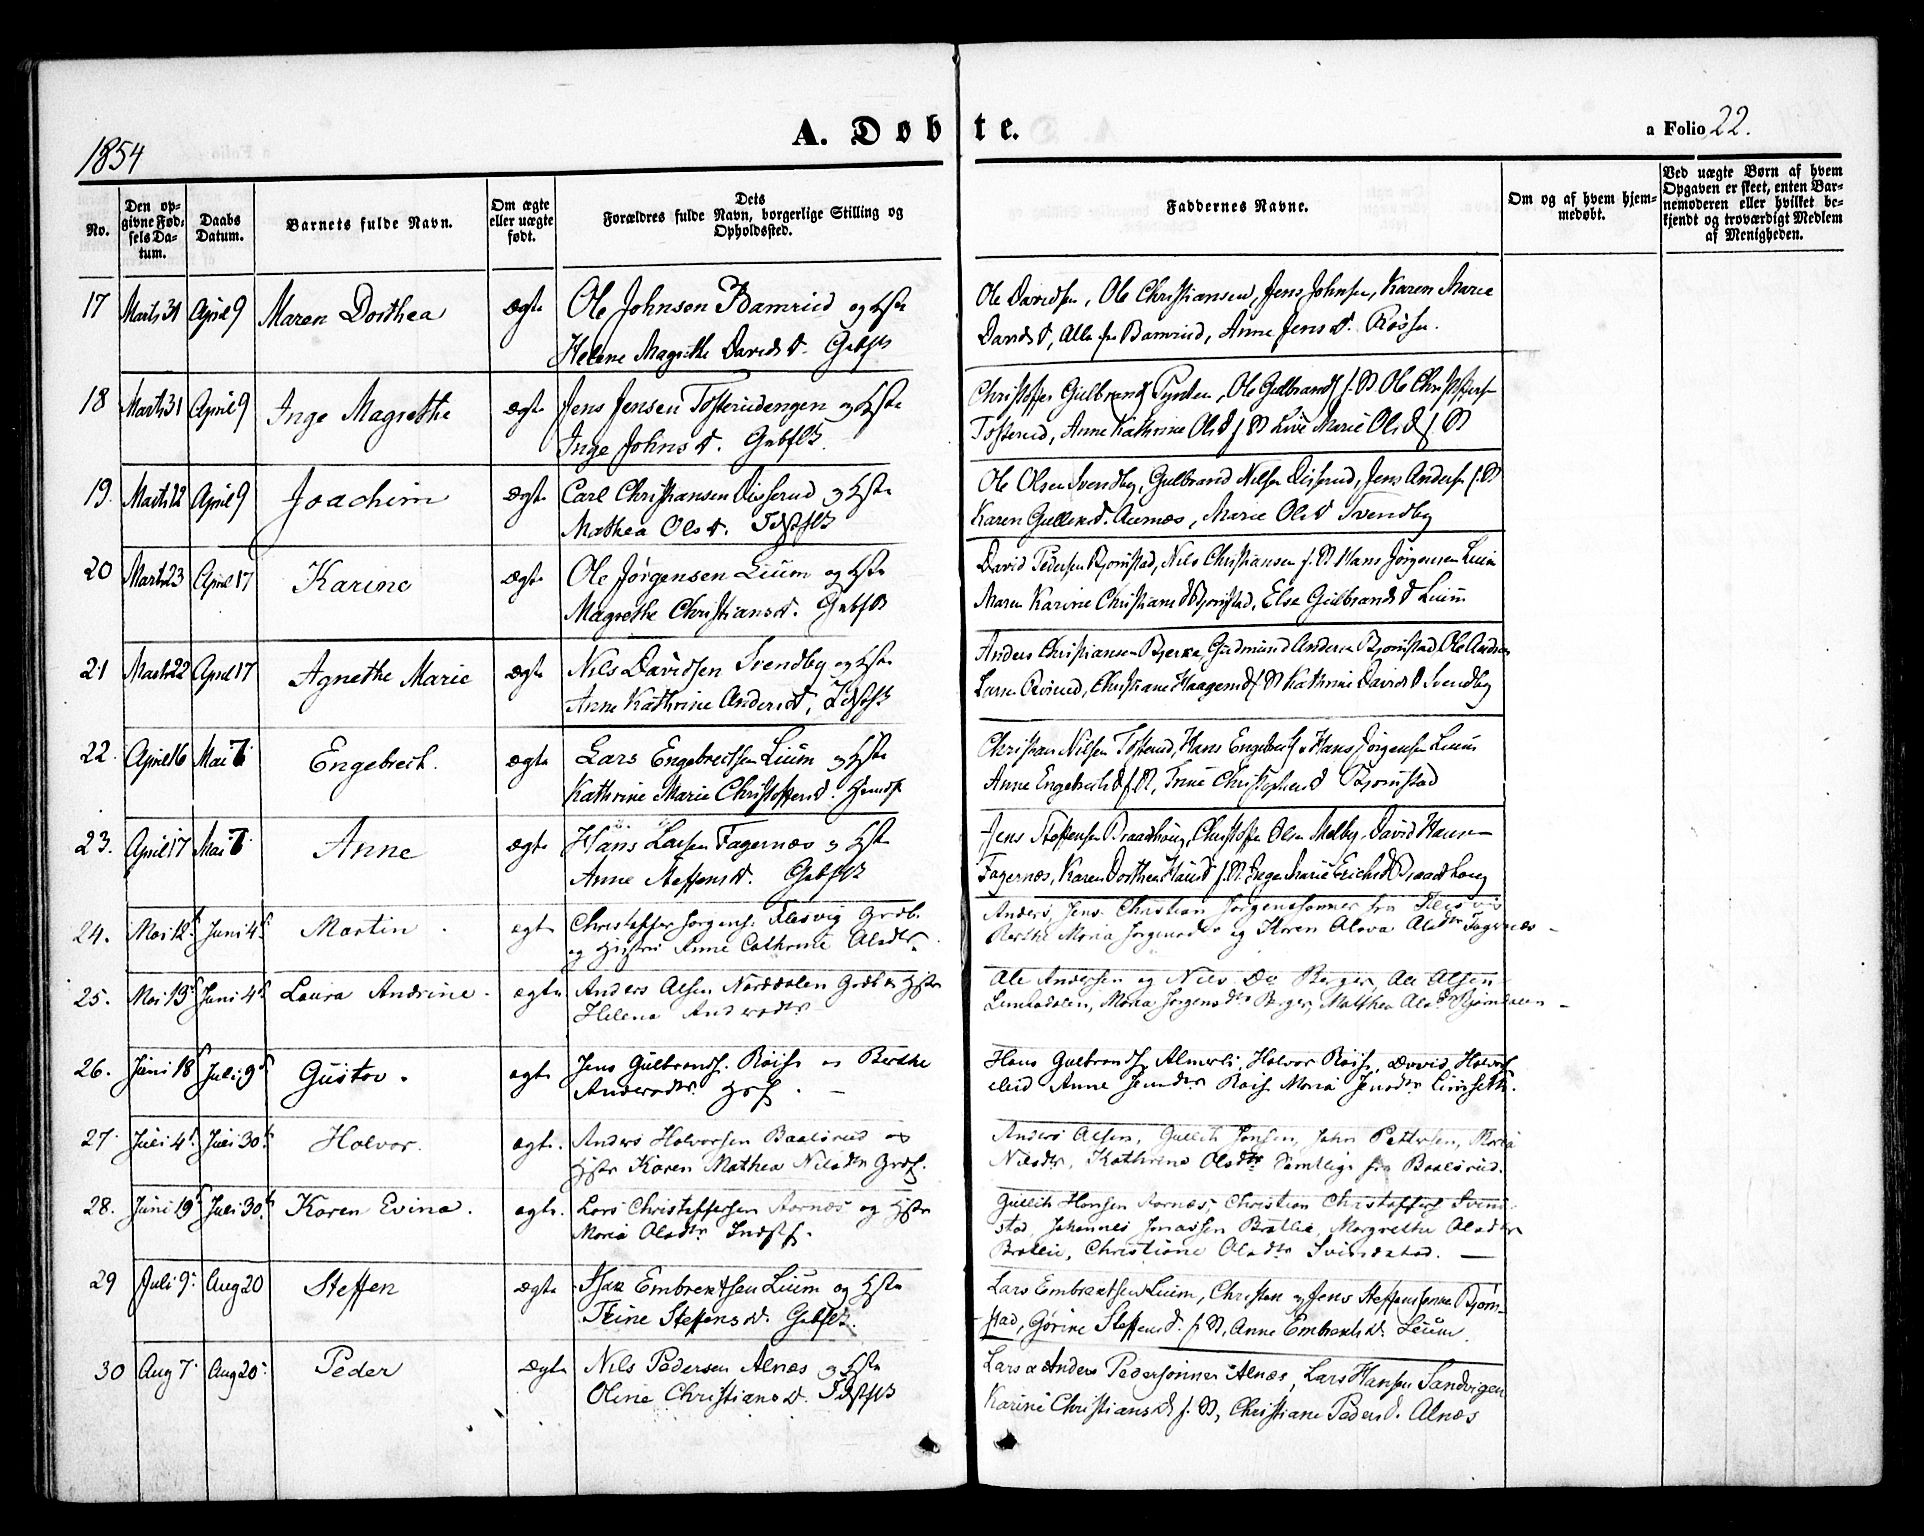 1854
A. Døbte.
a Folio 22.
No.
Den opgivne Fødsels Datum.
Daabs Datum.
Barnets fulde Navn.
Om ægte eller uægte født.
Dets Forældres fulde Navn, borgerlige Stilling og Opholdssted.
Faddernes Navne.
Om og af hvem hjemmedøbt.
Ved uægte Børn af hvem Opgaven er skeet, enten Barnemoderen eller hvilket bekjendt og troværdigt Medlem af Menigheden.
17 Marts 31 April 9 Maren Dorthea ægte Ole Johnsen Bamrud og Hstr
Helene Magrethe Davids D.
Ole Davidsen, Ole Christiansen, Jens Johnsen, Karen Marie
Davids D, Alle fra Bamrud, Anne Jens D.
18 Marts 31 April 9 Inge Magrethe ægte Jens Jensen Tosterudengen og Hstr
Inge Johns D.
Christoffer Gulbrands, Ole Gulbrands f. St Ole Christoffers
Tosterud, Anne Kathrine Ols D f St Live Marie Ols D f St
19. Marts 22 April 9 Joachim ægte Carl Christiansen Disserud og Hstr
Mathea Ols D.
Ole Olsen Svendby, Gulbrand Nilsen Disserud, Jens Anders f. St
Karen Gulleks D. Aurnæs, Marie Ols D Svendby
20 Marts 23 April 17 Karine ægte Ole Jørgensen Lium og Hstr
Magrethe Christians D.
David Pedersen Bjørnstad, Nils Christiansen f. St Hans Jørgensen Lium
Maren Karine Christians D Bjørnstad, Else Gulbrands D Lium
21 Marts 22 April 17 Agnethe Marie ægte Nils Davidsen Svendby og Hstr
Anne Kathrine Anders D,
Anders Christiansen Bjerke, Gudmund Andersen Bjørnstad Ole Anders
Christiane Haagens D f St Kathrine Davids D Svendby
22. April 16 Mai 7 Engebrecht. ægte Lars Engebrechtsen Lium og Hstr
Kathrine Marie Christoffers D.
Christian Nilsen Tosterud, Hans Engebrechts, Hans Jørgensen Lium
Anne Engebrechts D f St, Trine Christophers D Bjørnstad
23. April 17 Mai 7 Anne ægte Hans Larsen Fagernæs og Hstr
Anne Steffens D.
Jens Steffensen Braadhoug, Christoffer Olsen Melby, David Hansen
Fagernæs, Karen Dorthea Hans D f. St. Inge Marie Erichs D Braadhoug
24. Mai 12t Juni 4t Martin. ægte Christopher Jørgens. Flesvig Grdb.
og Hustru Anne Cathrine Olsdtr.
Anders, Jens Christian Jørgenssønner fra Flesvig
Berthe Maria Jørgensdtr og Karen Olava Olsdtr Fagernæs -
25. Mai 13t Juni 4t Laura Andrine. ægte Anders Olsen Norddalen Grdb og Hstr
Helena Andersdtr
Ole Andersen og Nils De Berger, Ole Olsen
Maria Jørgensdtr Berger, Mathea Olsdtr -
26. Juni 18t Juli 9t Gustav. ægte Jens Gulbrands. og Berthe
Andersdtr.
Hans Gulbrands. Almerli, Halvor, David Halvors
Anne Maria Jensdtr.
27. Juli 4t Juli 30t Halvor. ægte. Anders Halvorsen Baalsrud og
Hstr Karen Mathea Nilsdtr
Anders Olsen, Gullik Jonsen, John Pettersen, Maria
Nilsdtr, Kathrine Olsdtr Samtlige fra Baalsrud.
28. Juni 19t Juli 30t Karen Evina. ægte. Lars Christophersen Aarnæs og Hstr
Maria Olsdtr
Gullik Hansen Aarnæs, Christian Christoffers Svind
stad, Johannes Jonassen Brallie, Margrethe Olsdtr
Brallie, Christiane Olsdtr Svindstad. -
29 Juli 9. Aug 20 Steffen ægte Isak Embrektsen Lium og Hstr
Trine Steffens D.
Lars Embrektsen Lium, Christen og Jens Steffensønner Bjørn-
stad, Gørine Steffens D. f. St, Anne Embrekts D. Lium.
30 Aug 7. Aug 20. Peder ægte Nils Pedersen Alnæs og Hstr
Oline Christians D.
Lars & Anders Pedersønner Alnæs, Lars Hansen Sandvigen
Karine Christians D f. St, Christiane Peders D. Alnæs